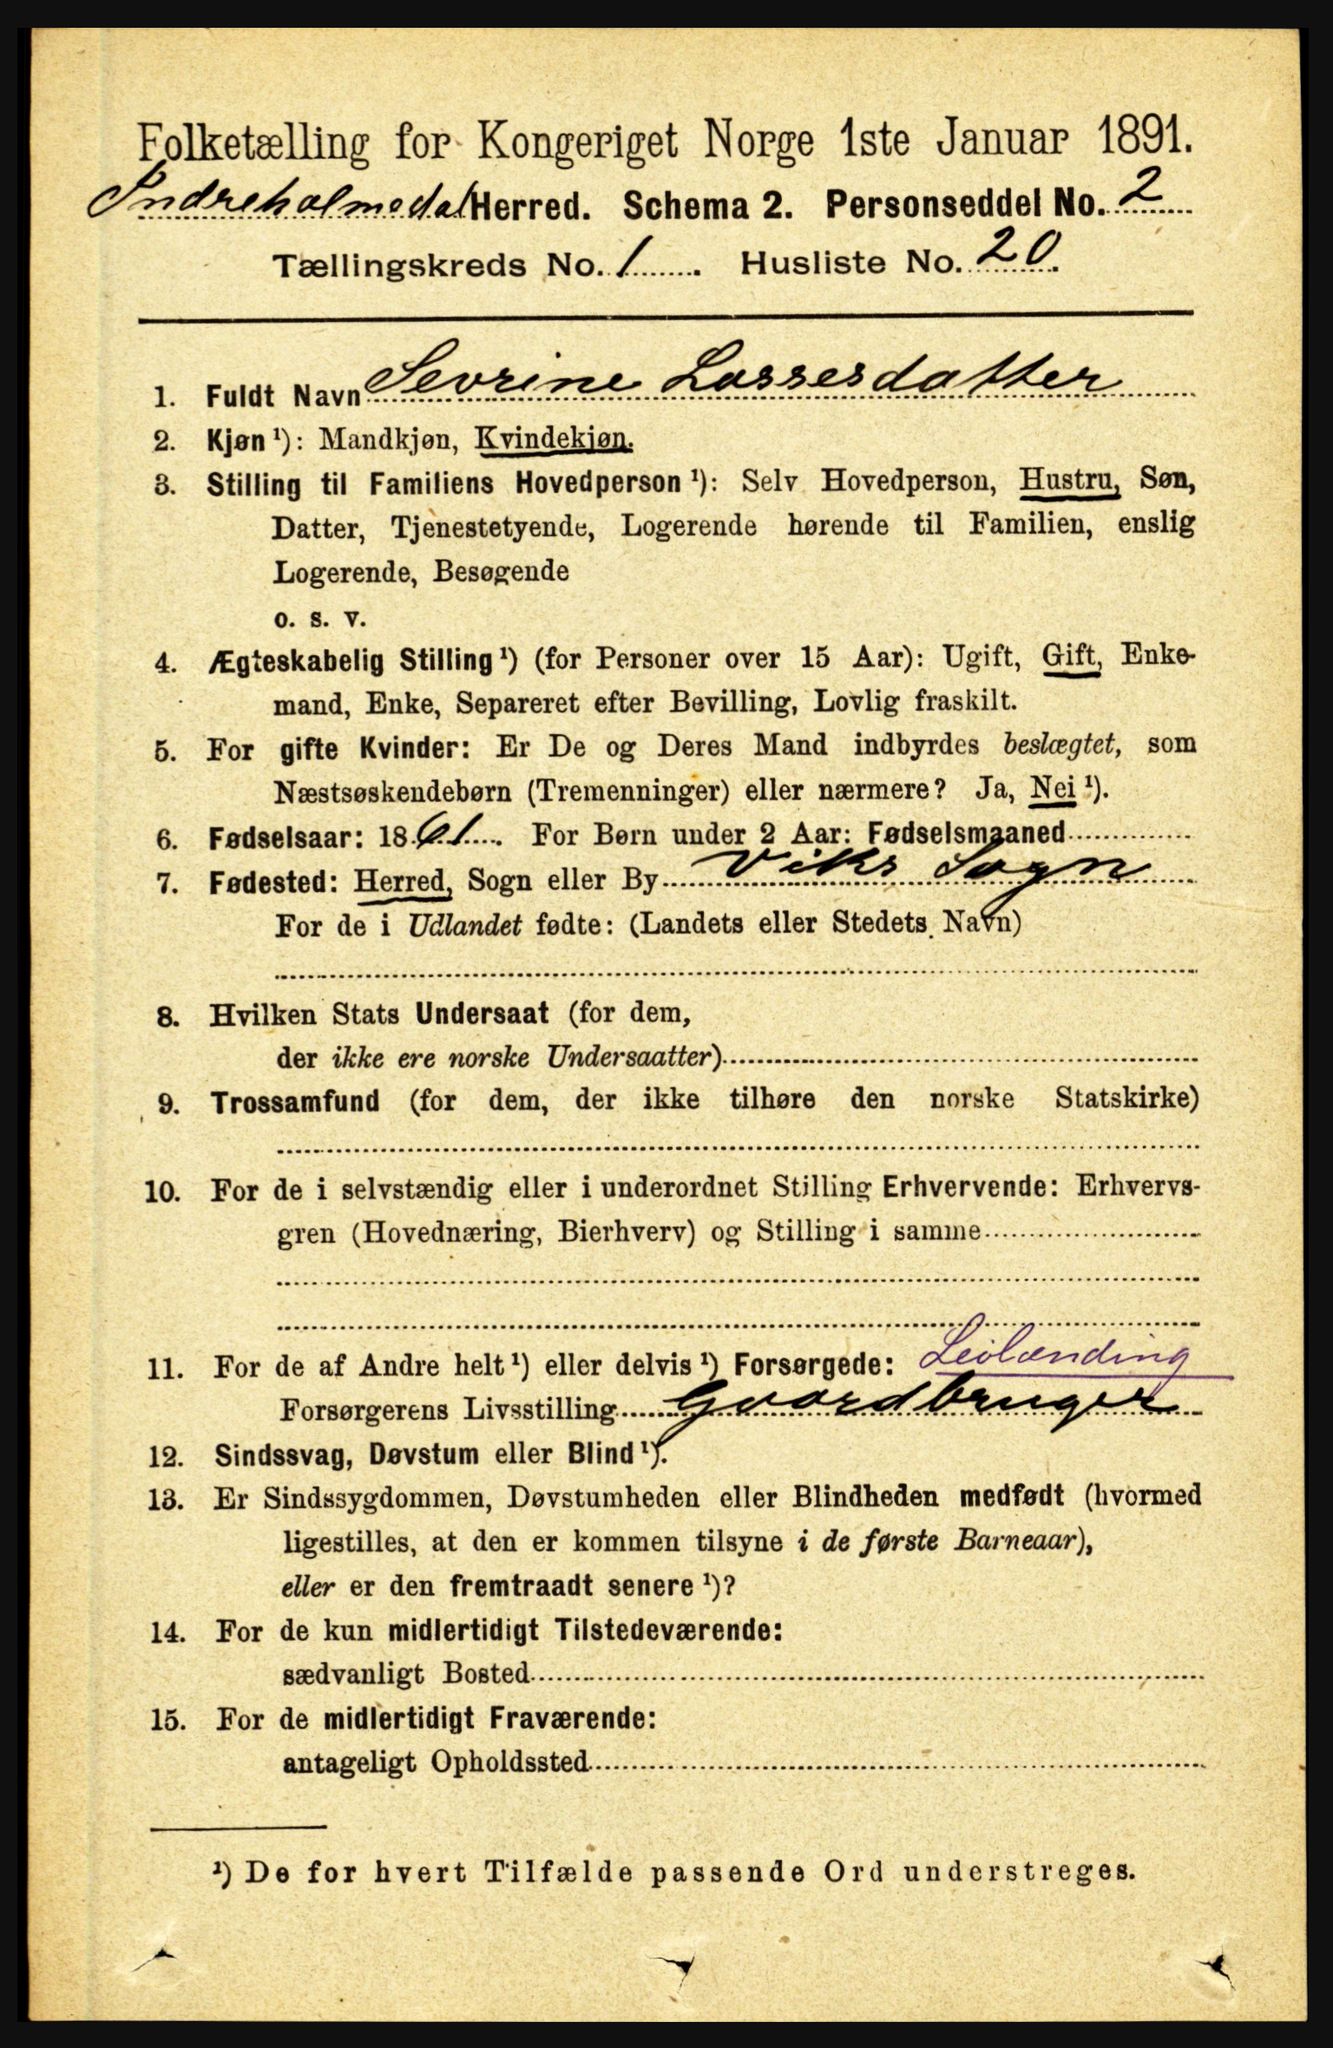 Folketælling for Kongeriget Norge 1ste Januar 1891.
Indreholmedal Herred. Schema 2. Personseddel No. 2
Tællingskreds No. 1. Husliste No. 20.
1. Fuldt Navn Sevrine Lassesdatter
2. Kjøn ¹): Mandkjøn, Kvindekjøn.
3. Stilling til Familiens Hovedperson ¹): Selv Hovedperson, Hustru, Søn,
Datter, Tjenestetyende, Logerende hørende til Familien, enslig
Logerende, Besøgende
o. s. v.
4. Ægteskabelig Stilling ¹) (for Personer over 15 Aar): Ugift, Gift, Enke-
mand, Enke, Separeret efter Bevilling, Lovlig fraskilt.
5. For gifte Kvinder: Er De og Deres Mand indbyrdes beslægtet, som
Næstsøskendebørn (Tremenninger) eller nærmere? Ja, Nei ¹).
6. Fødselsaar: 1861. For Børn under 2 Aar: Fødselsmaaned
7. Fødested: Herred, Sogn eller By Viks Sogn
For de i Udlandet fødte: (Landets eller Stedets Navn)
8. Hvilken Stats Undersaat (for dem,
der ikke ere norske Undersaatter)
9. Trossamfund (for dem, der ikke tilhøre den norske Statskirke)
10. For de i selvstændig eller i underordnet Stilling Erhvervende: Erhvervs-
gren (Hovednæring, Bierhverv) og Stilling i samme
11. For de af Andre helt ¹) eller delvis ¹) Forsørgede: Leilænding
Forsørgerens Livsstilling Gaardbruger
12. Sindssvag, Døvstum eller Blind ¹).
13. Er Sindssygdommen, Døvstumheden eller Blindheden medfødt (hvormed
ligestilles, at den er kommen tilsyne i de første Barneaar),
eller er den fremtraadt senere ¹)?
14. For de kun midlertidigt Tilstedeværende:
sædvanligt Bosted
15. For de midlertidigt Fraværende:
antageligt Opholdssted
¹) De for hvert Tilfælde passende Ord understreges.